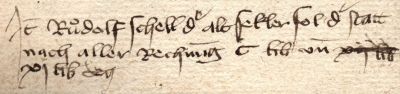 It Růdolf schell dͤ alt seller sol dͤ statt
nach aller Rechnūg C lib vn̄ xij lib
xj lib